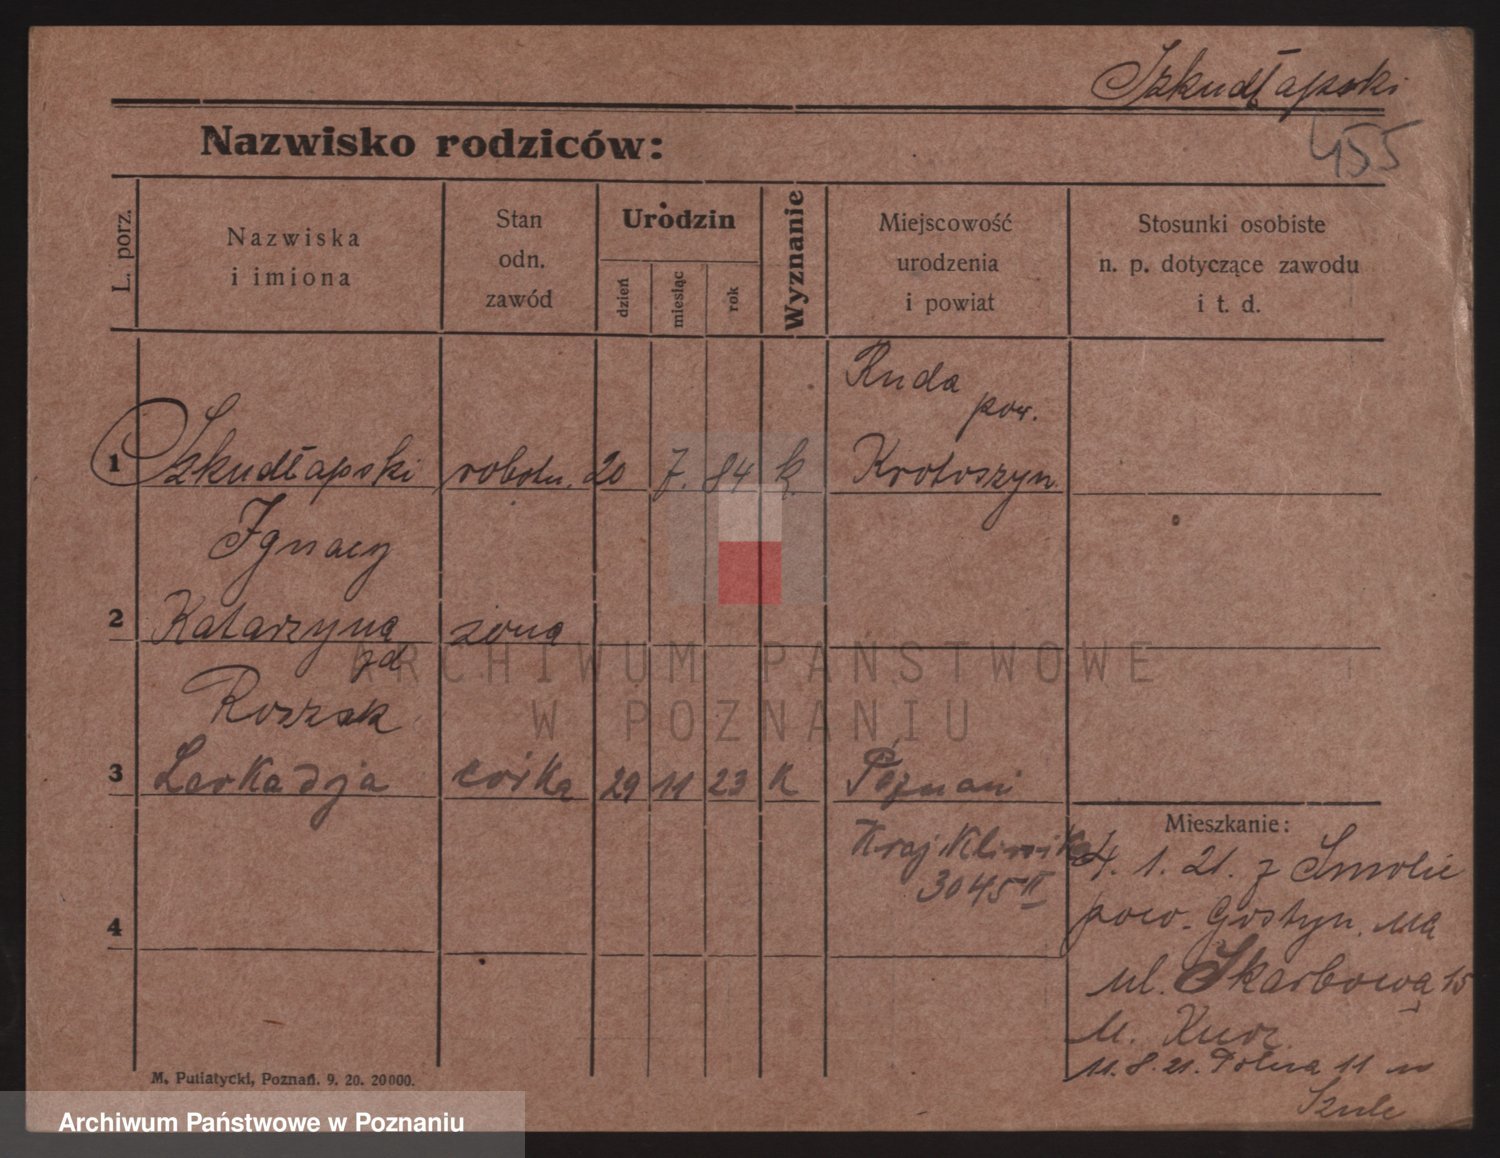 Szkudłapski
455
Nazwisko rodziców:
L. porz.
Nazwiska
i imiona
Stan
odn.
zawód
Urodzin
dzień
miesiąc
rok
Wyznanie
Miejscowość
urodzenia
i powiat
Stosunki osobiste
n. p. dotyczące zawodu
i t. d.
1 Szkudłapski robotn. 20 7. 84 k. Ruda
pow.
Krotoszyn
Ignacy
2 Katarzyna żona
zd
Roszak
3 Leokadja córka 29 11 23 K Poznań
Kraj. Klinika
3045 II
4
Mieszkanie:
4. 1. 21. z Smolic
pow. Gostyn. na
ul. Skarbową 15
u. Kucz.
11. 8. 21. Polna 11 u
Szulc
M. Putiatycki, Poznań. 9. 20. 20000.
ARCHIWUM PAŃSTWOWE
W POZNANIU
Archiwum Państwowe w Poznaniu